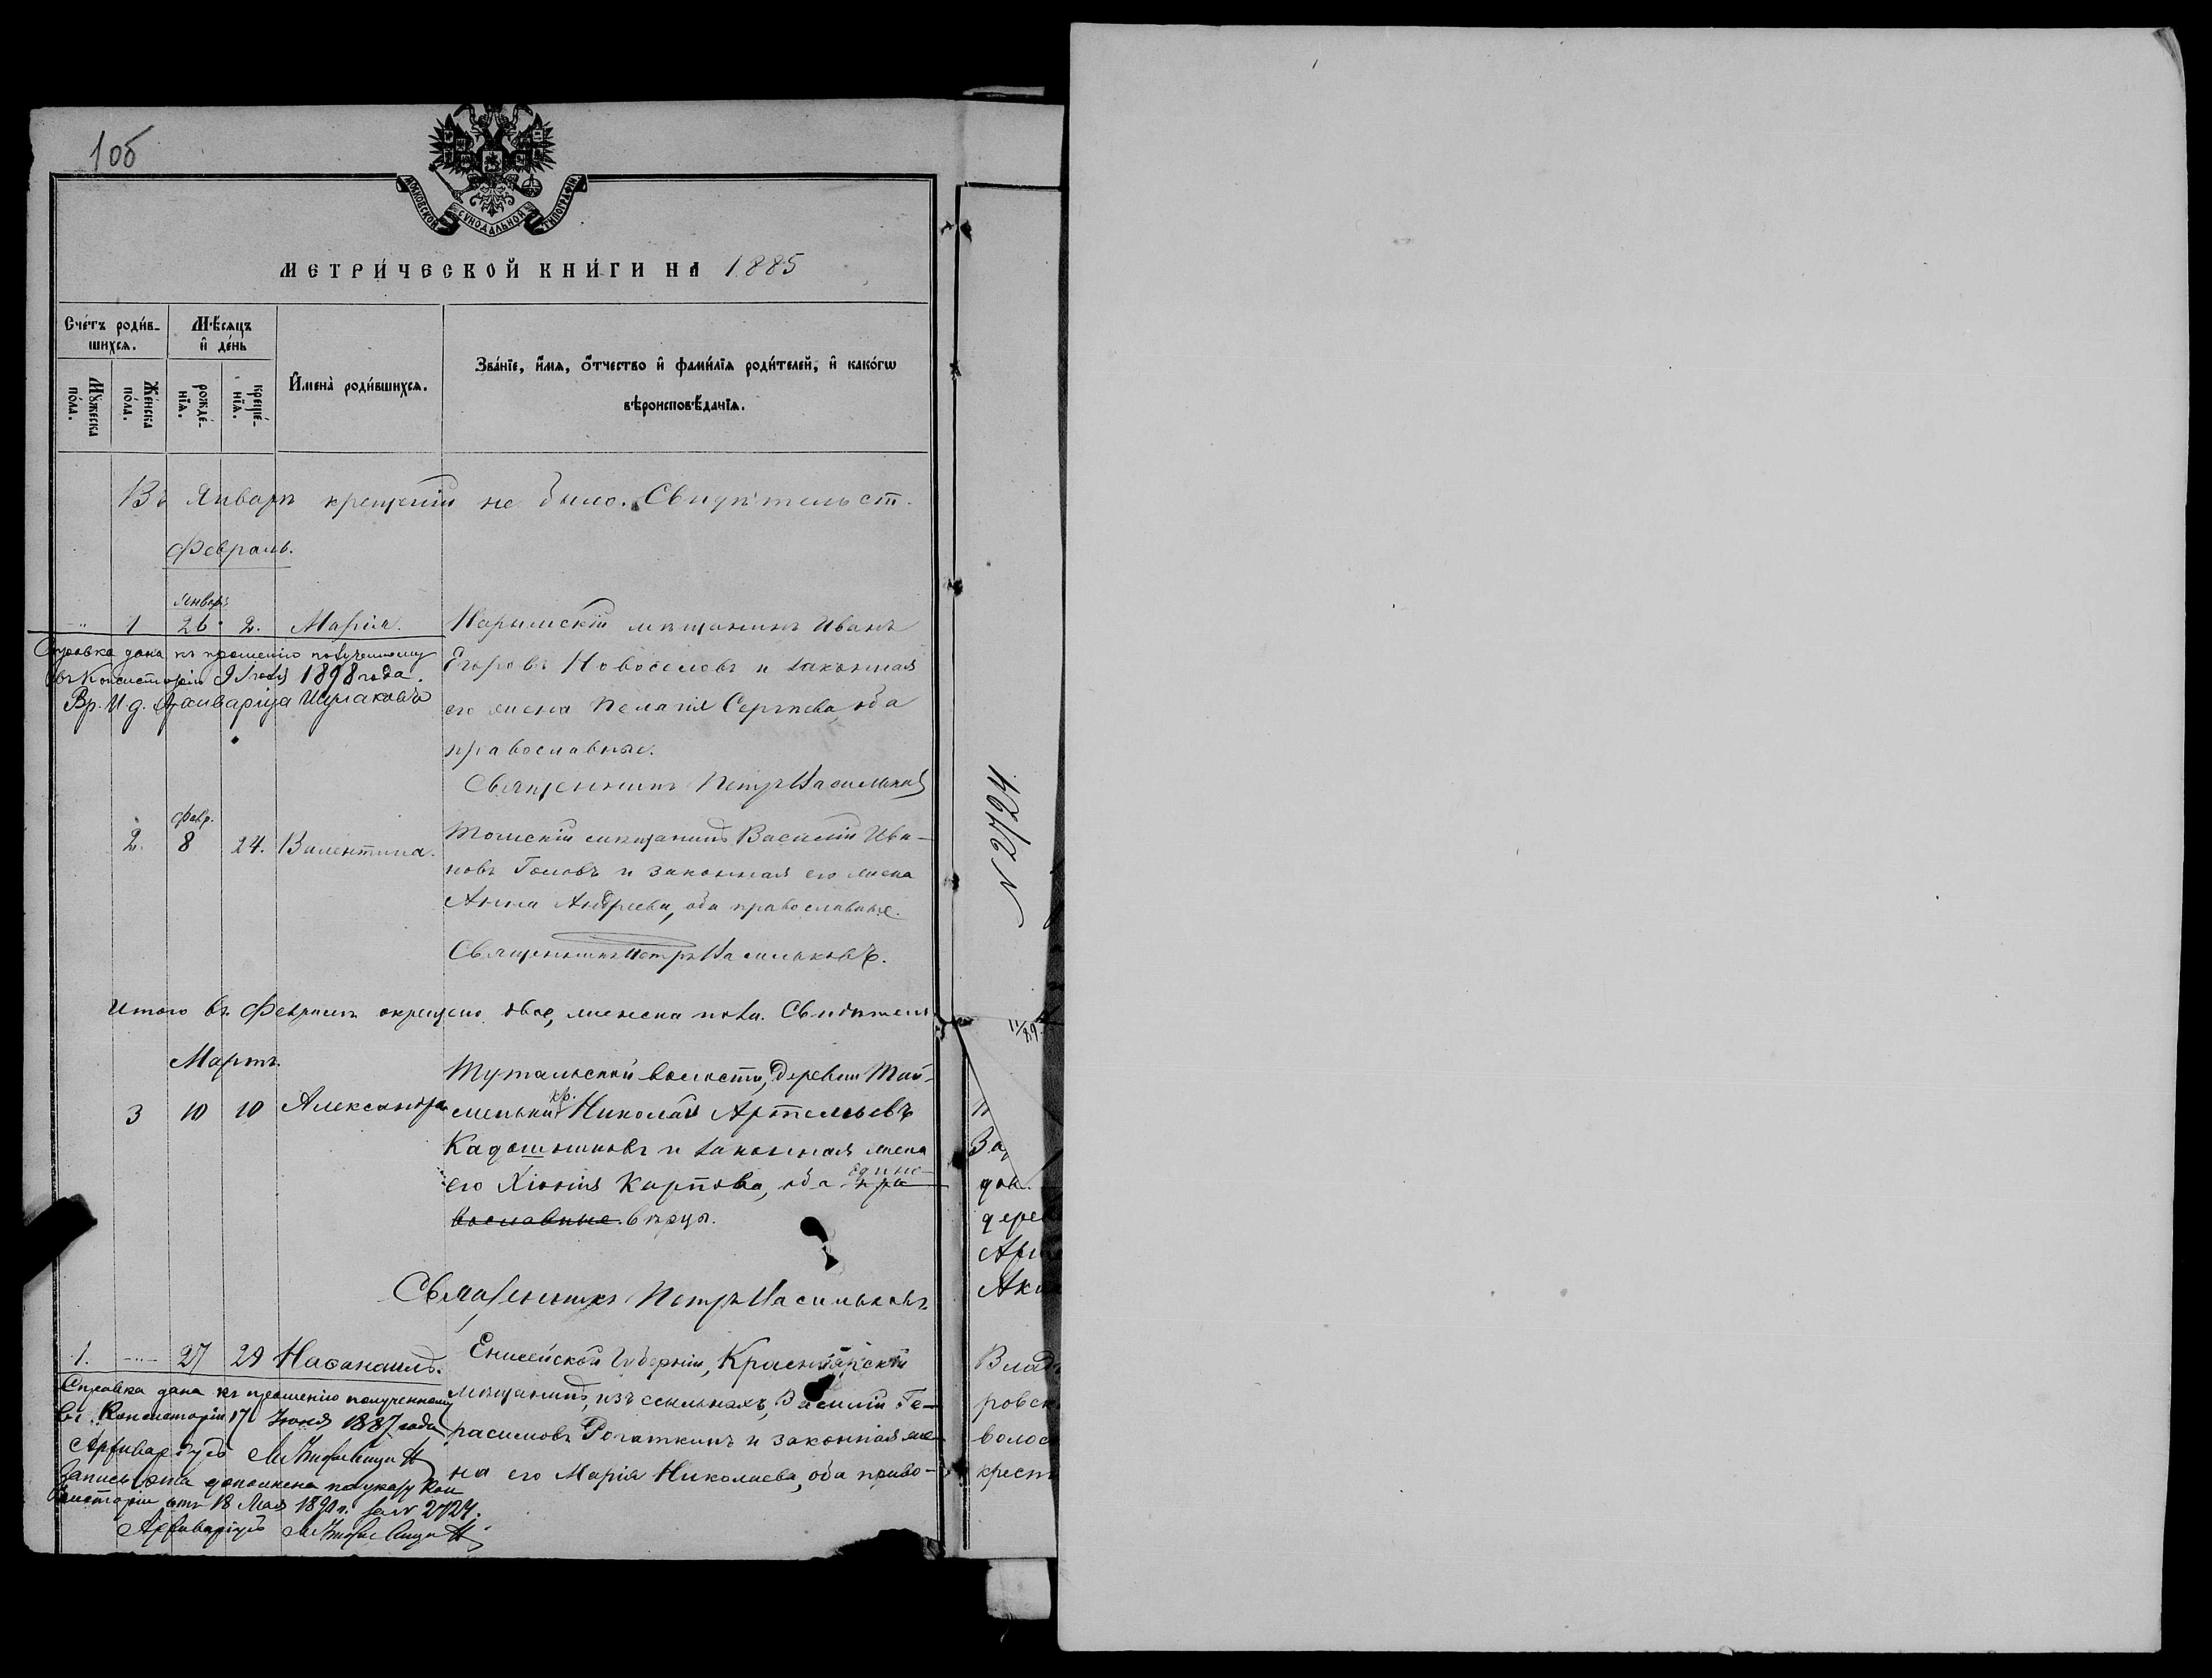 105
МОСКОВСКОЙ СѴНОДАЛЬНОЙ ТИПОГРАФІИ
МЕТРИ́ЧЕСКОЙ КНИ́ГИ НА 1885
Сче́тъ роди́в-
шихсѧ.
Мѣ́сѧцъ
и҆ де́нь
Мꙋ́жеска
по́ла.
Же́нска
по́ла.
рожде́-
нїѧ.
креще́-
нїѧ.
И҆мена̀ роди́вшихсѧ.
Зва́нїе, и҆́мѧ, ѻ҆́тчество и҆ фами́лїѧ роди́телей, и҆ како́гѡ
вѣроисповѣ́данїѧ.
Въ Январѣ крещеній не было. Свидѣтельст.
Февраль.
Январь
1 26 2. Марія. Нарымскій мѣщанинъ Иванъ
Егоровъ Новоселовъ и законная
его жена Пелагія Сергѣева, оба
православные.
Священникъ Петръ Васильковъ
Справка дана къ прошенію полученному
въ Консисторіи 9 1898 года.
Вр. И. д. Архиваріуса
Февр.
2. 8 24. Валентина. Томскій мѣщанинъ Василій Ива-
новъ Головъ и законная его жена
Анна Андреева, оба православные.
Священникъ Петръ Васильковъ.
Итого въ Февралѣ окрещено двое, женска пола. Свидѣтель
Мартъ.
3 10 10 Александра Тутальской волости, деревни Тай-
меньки кр. Николай Артемьевъ
Кадошниковъ и законная жена
его Хіонія Карпова, оба едино-
пра
вославные вѣрцы.
Священникъ Петръ Васильковъ
1. 27 29 Наѳанаилъ. Енисейской Губерніи, Красноярскій
мѣщанинъ, изъ ссыльныхъ, Василій Ге-
расимовъ Рогаткинъ и законная же
на его Марія Николаева, оба право-
Справка дана къ прошенію полученному
въ Консисторіи 17 Іюня 1887 года
Архиваріусъ
Запись эта дополнена по указу Кон
систоріи отъ 18 Мая 1891 г. за № 2724.
Архиваріусъ
№ 2724
За
дов.
дере
Арт
Аки
Влад
ровск
волос
крест